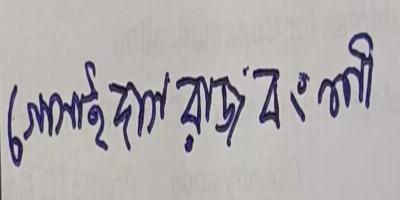 গোসাই দাস রাজ বংশী